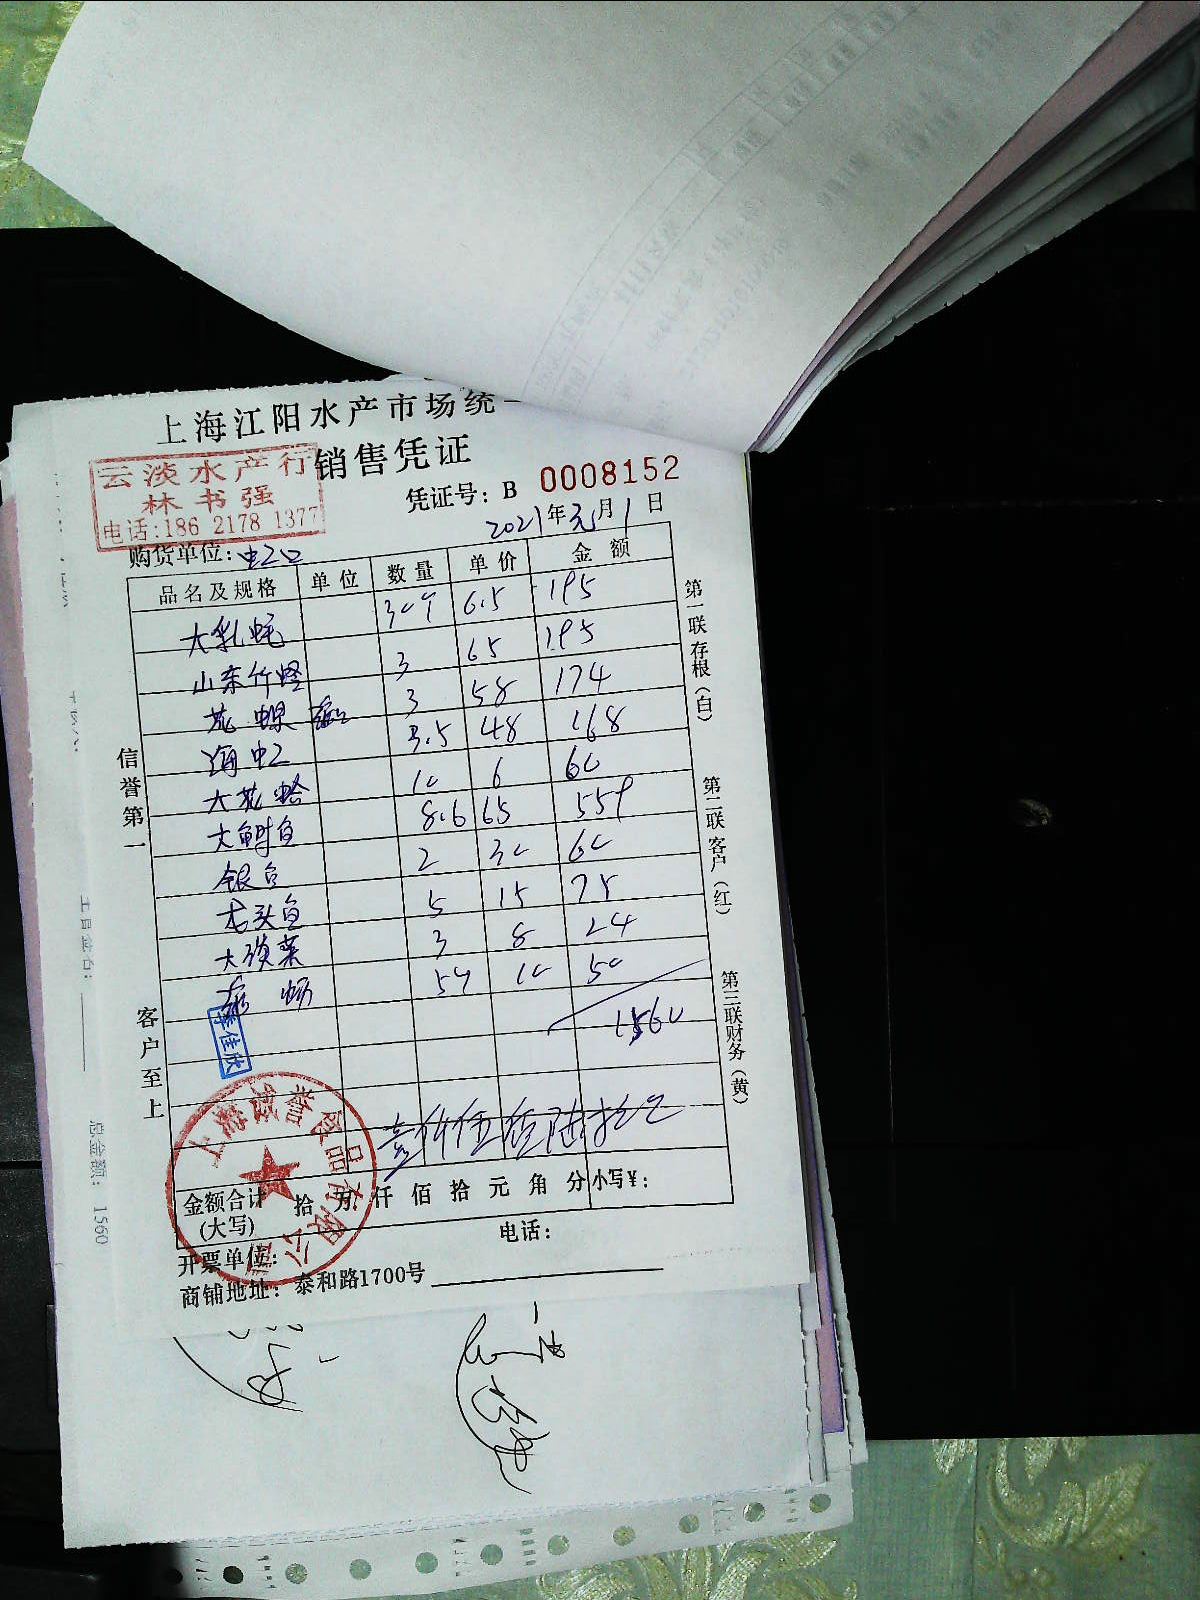 上海江阳水产市场统一
销售凭证
云淡水产行
林书强
电话:186 2178 1377
凭证号: B 0008152
2021年元月1日
购货单位: 虹口
品名及规格 单位 数量 单价 金额
大乳蚝 30个 6.5 195
山东竹蛏 3 65 195
花螺 3 58 174
海虹 3.5 48 168
大花蛤 10 6 60
大鲥鱼 8.6 65 559
银鱼 2 30 60
龙头鱼 5 15 75
大淡菜 3 8 24
5个 10 50
1560
李佳欣
壹仟伍佰陆拾元
金额合计 拾 万 仟 佰 拾 元 角 分 小写¥:
(大写)
开票单位: 电话:
商铺地址: 泰和路1700号
信誉第一
客户至上
第一联存根(白)
第二联客户(红)
第三联财务(黄)
食品有限公司
总金额: 1560